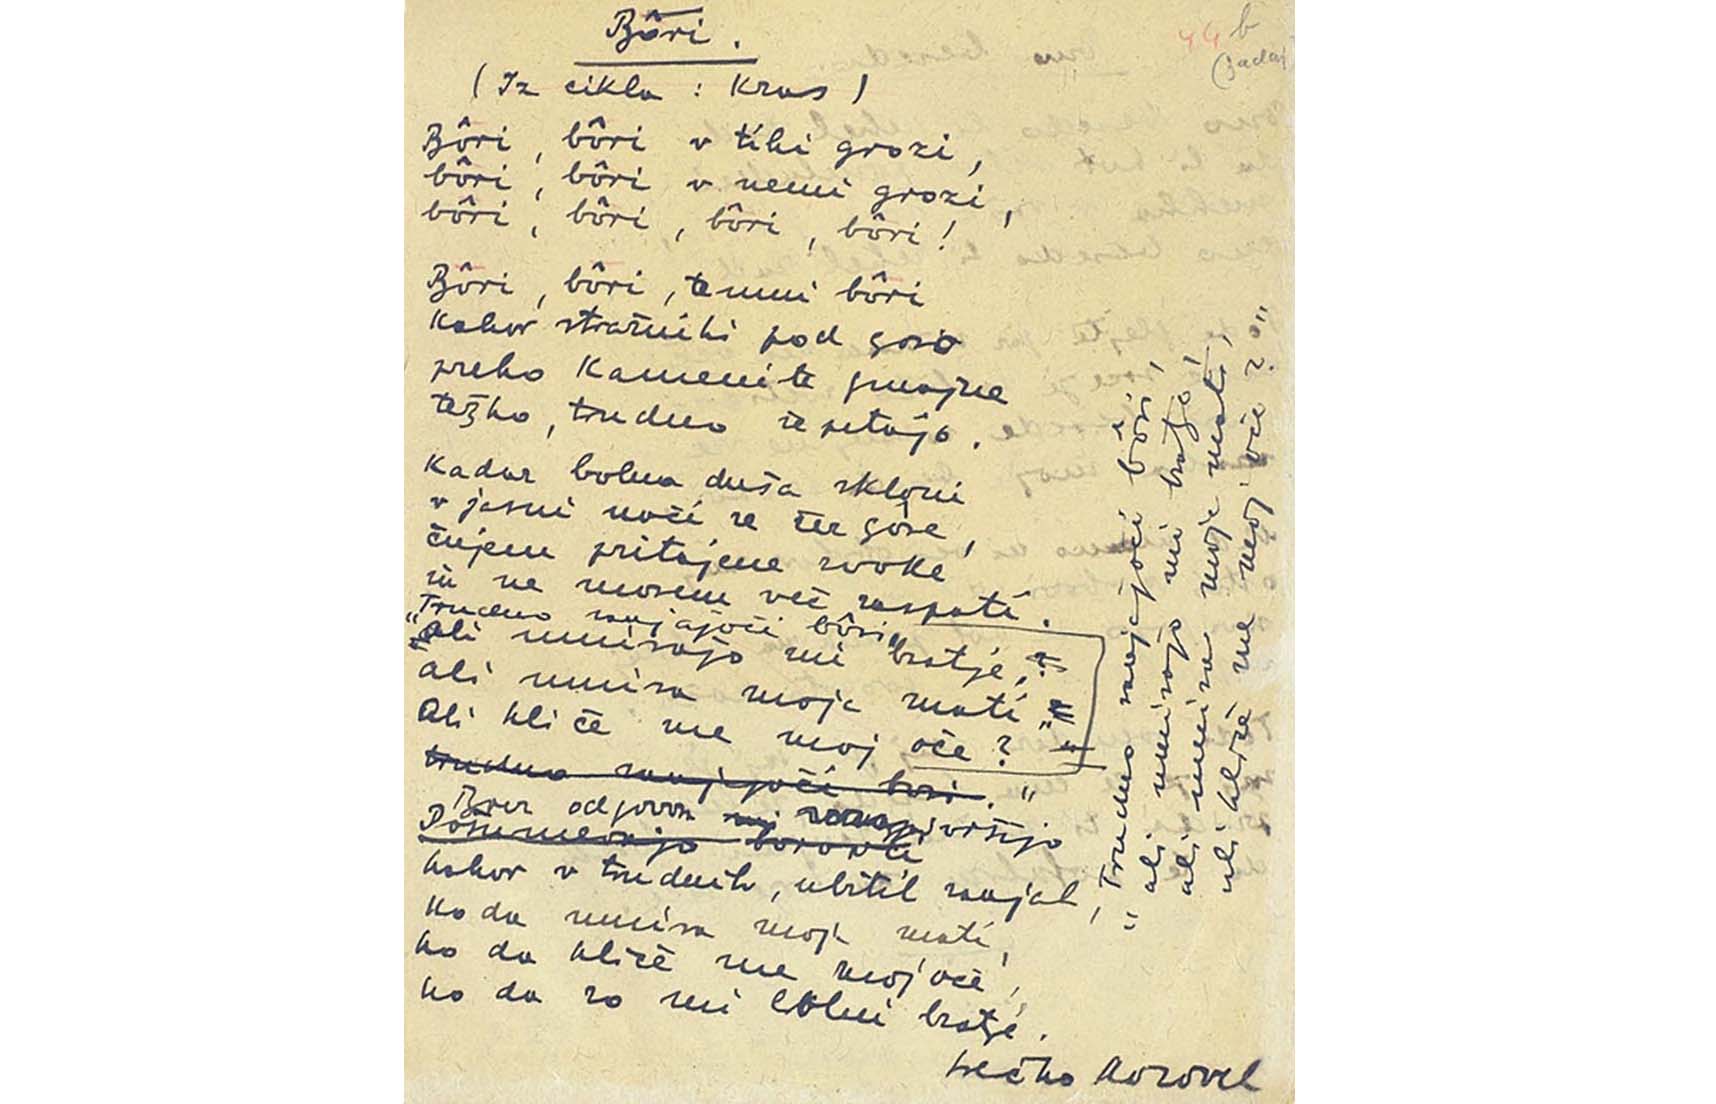 Bôri.
(Iz cikla: Kras)
44 b
(zadaj
Bôri, bôri v tihi grozi,
bôri, bôri v nemi grozi,
bôri, bôri, bôri, bôri!
Bôri, bôri, temni bôri
kakor stražniki pod goro
preko kamenite gmajne
težko, trudno šepetajo.
Kadar bolna duša skloni
v jasni noči se čez gore,
čujem pritajene zvoke
in ne morem več zaspati.
"Trudno sanjajoči bôri,
ali umirajo mi bratje,?
ali umira moja mati
ali kliče me moj oče?"
trudno sanjajoči bori."
Brez odgovora vršijo
kakor v trudnih, ubitih sanjah,
ko da umira moja mati,
ko da kliče me moj oče,
ko da so mi bolni bratje.
Srečko Kosovel
"Trudno sanjajoči bôri,
ali umirajo mi bratje,
ali umira moja mati,
ali kliče me moj oče?"